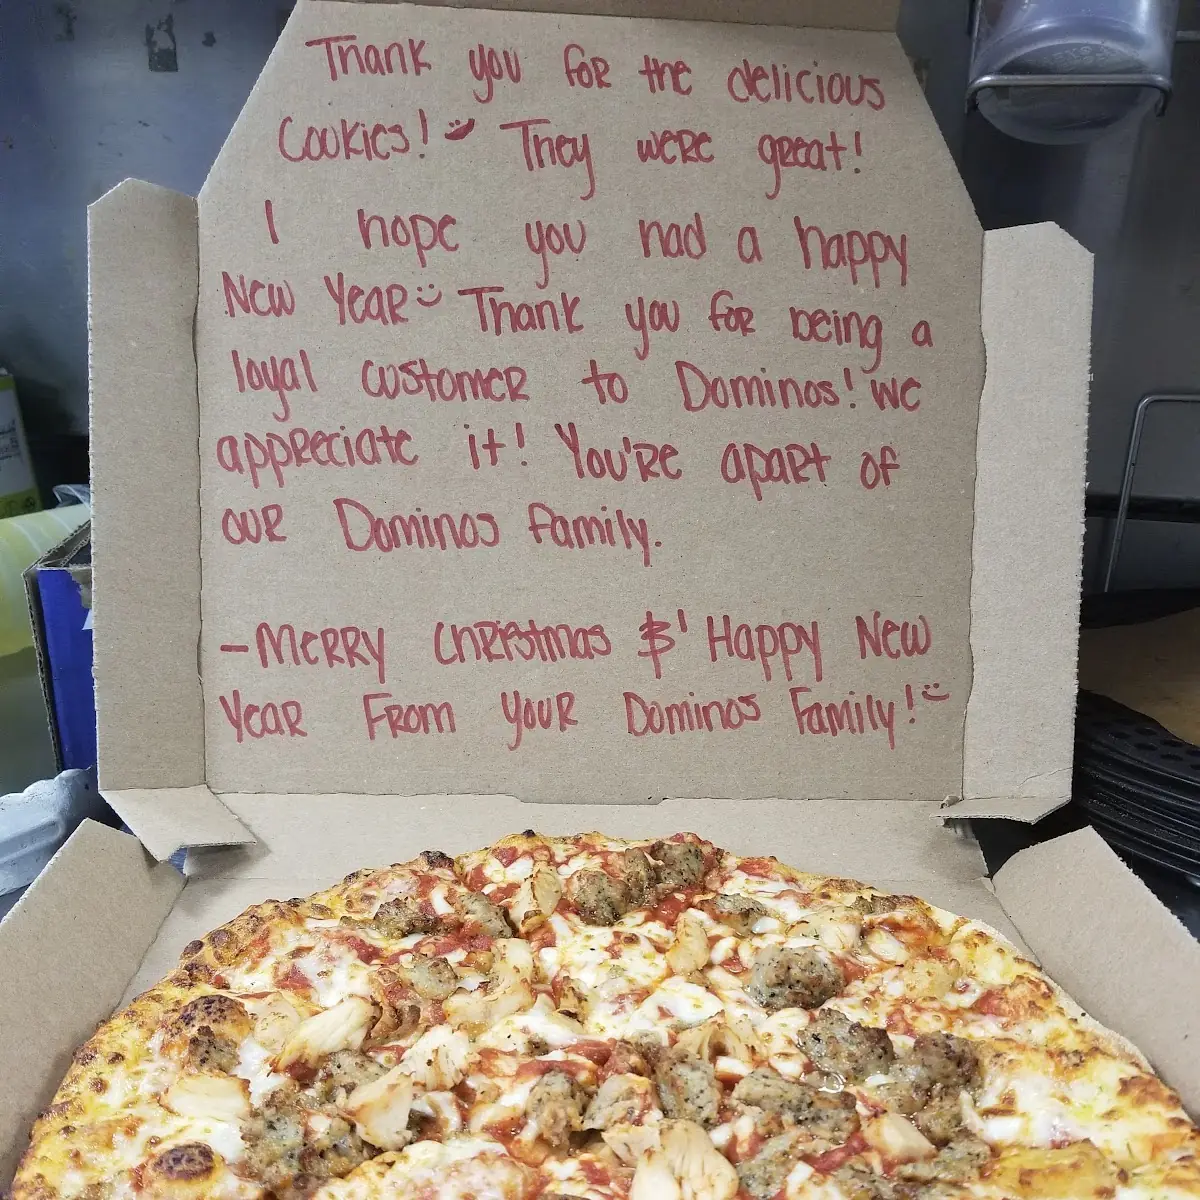 Thank you for the delicious
Cookies! They were great!
I hope you had a happy
New Year Thank you for being a
loyal customer to Dominos! we
appreciate it! You're apart of
our Dominos family.
- Merry Christmas & Happy New
Year From your Dominos Family!